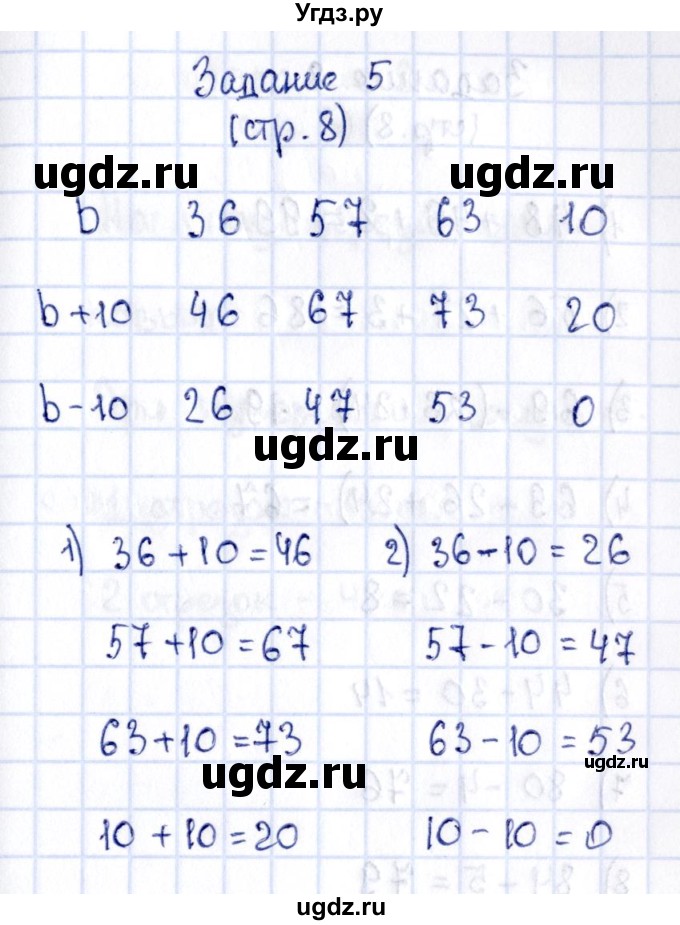 Угдз.ру
Задание 5
(стр. 8)
ugdz.ru ugdz.ru
b 36 57 63 10
b+10 46 67 73 20
b-10 26 47 53 0
ugdz.ru
1) 36+10=46 2) 36-10=26
57+10=67 57-10=47
63+10=73 63-10=53
ugdz.ru ugdz.ru
10+10=20 10-10=0
ugdz.ru